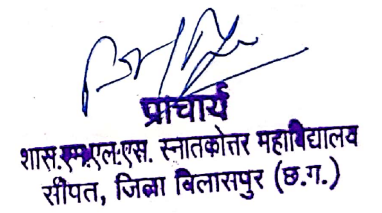 प्राचार्य
शास.एम.एल.एस. स्नातकोत्तर महाविद्यालय
सीपत, जिला बिलासपुर (छ.ग.)